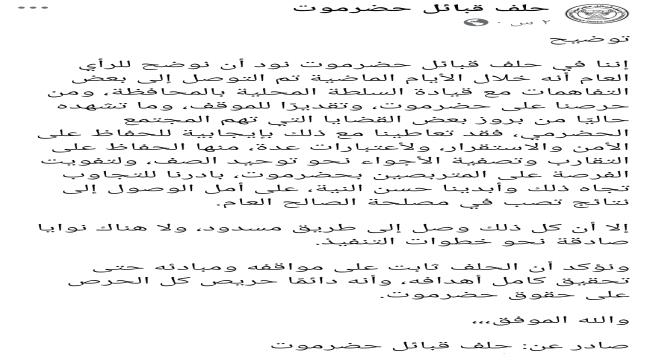 حلف قبائل حضرموت
٢ س ·
توضيح
إننا في حلف قبائل حضرموت نود أن نوضح للرأي
العام أنه خلال الأيام الماضية تم التوصل إلى بعض
التفاهمات مع قيادة السلطة المحلية بالمحافظة، ومن
حرصنا على حضرموت، وتقديرًا للموقف، وما تشهده
حاليًا من بروز بعض القضايا التي تهم المجتمع
الحضرمي، فقد تعاطينا مع ذلك بإيجابية للحفاظ على
الأمن والاستقرار، ولأعتبارات عدة، منها الحفاظ على
التقارب وتصفية الأجواء نحو توحيد الصف، ولتفويت
الفرصة على المتربصين بحضرموت، بادرنا للتجاوب
تجاه ذلك وأبدينا حسن النية، على أمل الوصول إلى
نتائج تصب في مصلحة الصالح العام.
إلا أن كل ذلك وصل إلى طريق مسدود، ولا هناك نوايا
صادقة نحو خطوات التنفيذ.
ونؤكد أن الحلف ثابت على مواقفه ومبادئه حتى
تحقيق كامل أهدافه، وأنه دائمًا حريص كل الحرص
على حقوق حضرموت.
والله الموفق،،،
صادر عن: حلف قبائل حضرموت